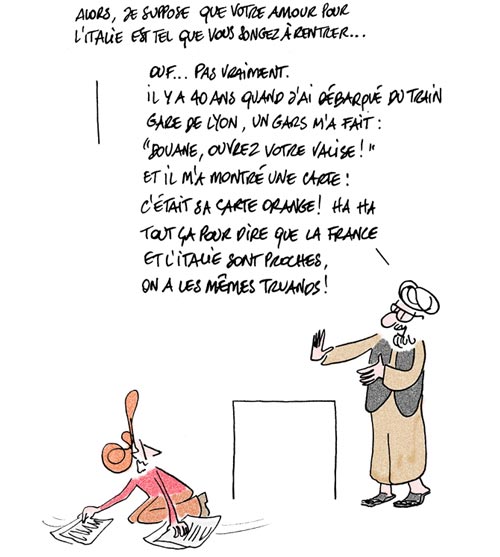 ALORS, JE SUPPOSE QUE VOTRE AMOUR POUR
L'ITALIE EST TEL QUE VOUS SONGEZ À RENTRER...
OUF... PAS VRAIMENT.
IL Y A 40 ANS QUAND J'AI DÉBARQUÉ DU TRAIN
GARE DE LYON, UN GARS M'A FAIT :
"DOUANE, OUVREZ VOTRE VALISE !"
ET IL M'A MONTRÉ UNE CARTE :
C'ÉTAIT SA CARTE ORANGE ! HA HA
TOUT ÇA POUR DIRE QUE LA FRANCE
ET L'ITALIE SONT PROCHES,
ON A LES MÊMES TRUANDS !